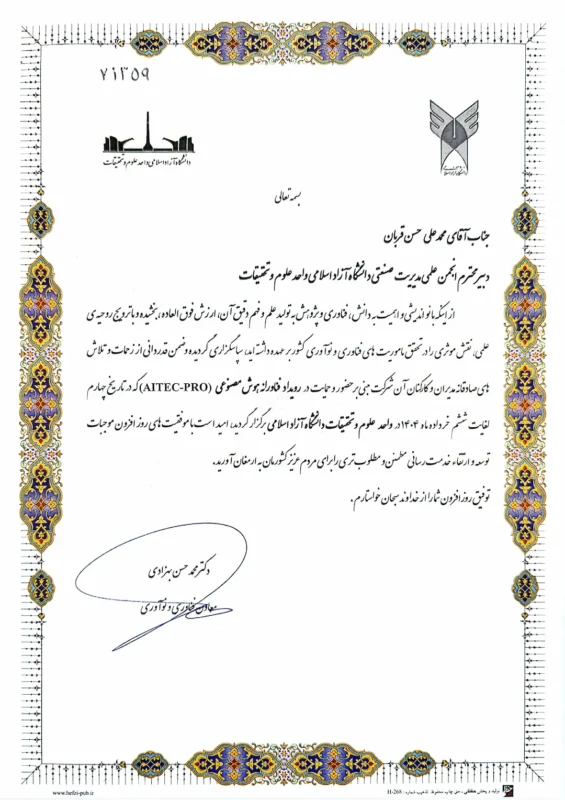 ۷۱۳۵۹
دانشگاه آزاد اسلامی واحد علوم و تحقیقات
بسمه تعالی
جناب آقای محمد علی حسن قربان
دبیر محترم انجمن علمی مدیریت صنعتی دانشگاه آزاد اسلامی واحد علوم و تحقیقات
از اینکه با نو اندیشی و اهمیت به دانش، فناوری و پژوهش به تولید علم و فهم دقیق آن، ارزش فوق العاده، بخشیده و با ترویج روحیه ی
علمی، نقش موثری را در تحقق ماموریت های فناوری و نوآوری کشور بر عهده داشته اید، سپاسگزاری گردیده و ضمن قدردانی از زحمات و تلاش
های صادقانه مدیران و کارکنان آن شرکت مبنی بر حضور و حمایت در رویداد فناورانه هوش مصنوعی (AITEC-PRO) که در تاریخ چهارم
لغایت ششم خرداد ماه ۱۴۰۴ در واحد علوم و تحقیقات دانشگاه آزاد اسلامی برگزار گردید، امید است با موفقیت های روز افزون موجبات
توسعه و ارتقاء خدمت رسانی مطمئن و مطلوب تری را برای مردم عزیز کشورمان به ارمغان آورید.
توفیق روز افزون شما را از خداوند سبحان خواستارم.
دکتر محمد حسن بهزادی
معاون فناوری و نوآوری
www.hefzi-pub.ir
تولید و پخش حفظی، حق چاپ محفوظ. تذهیب شماره: H-268